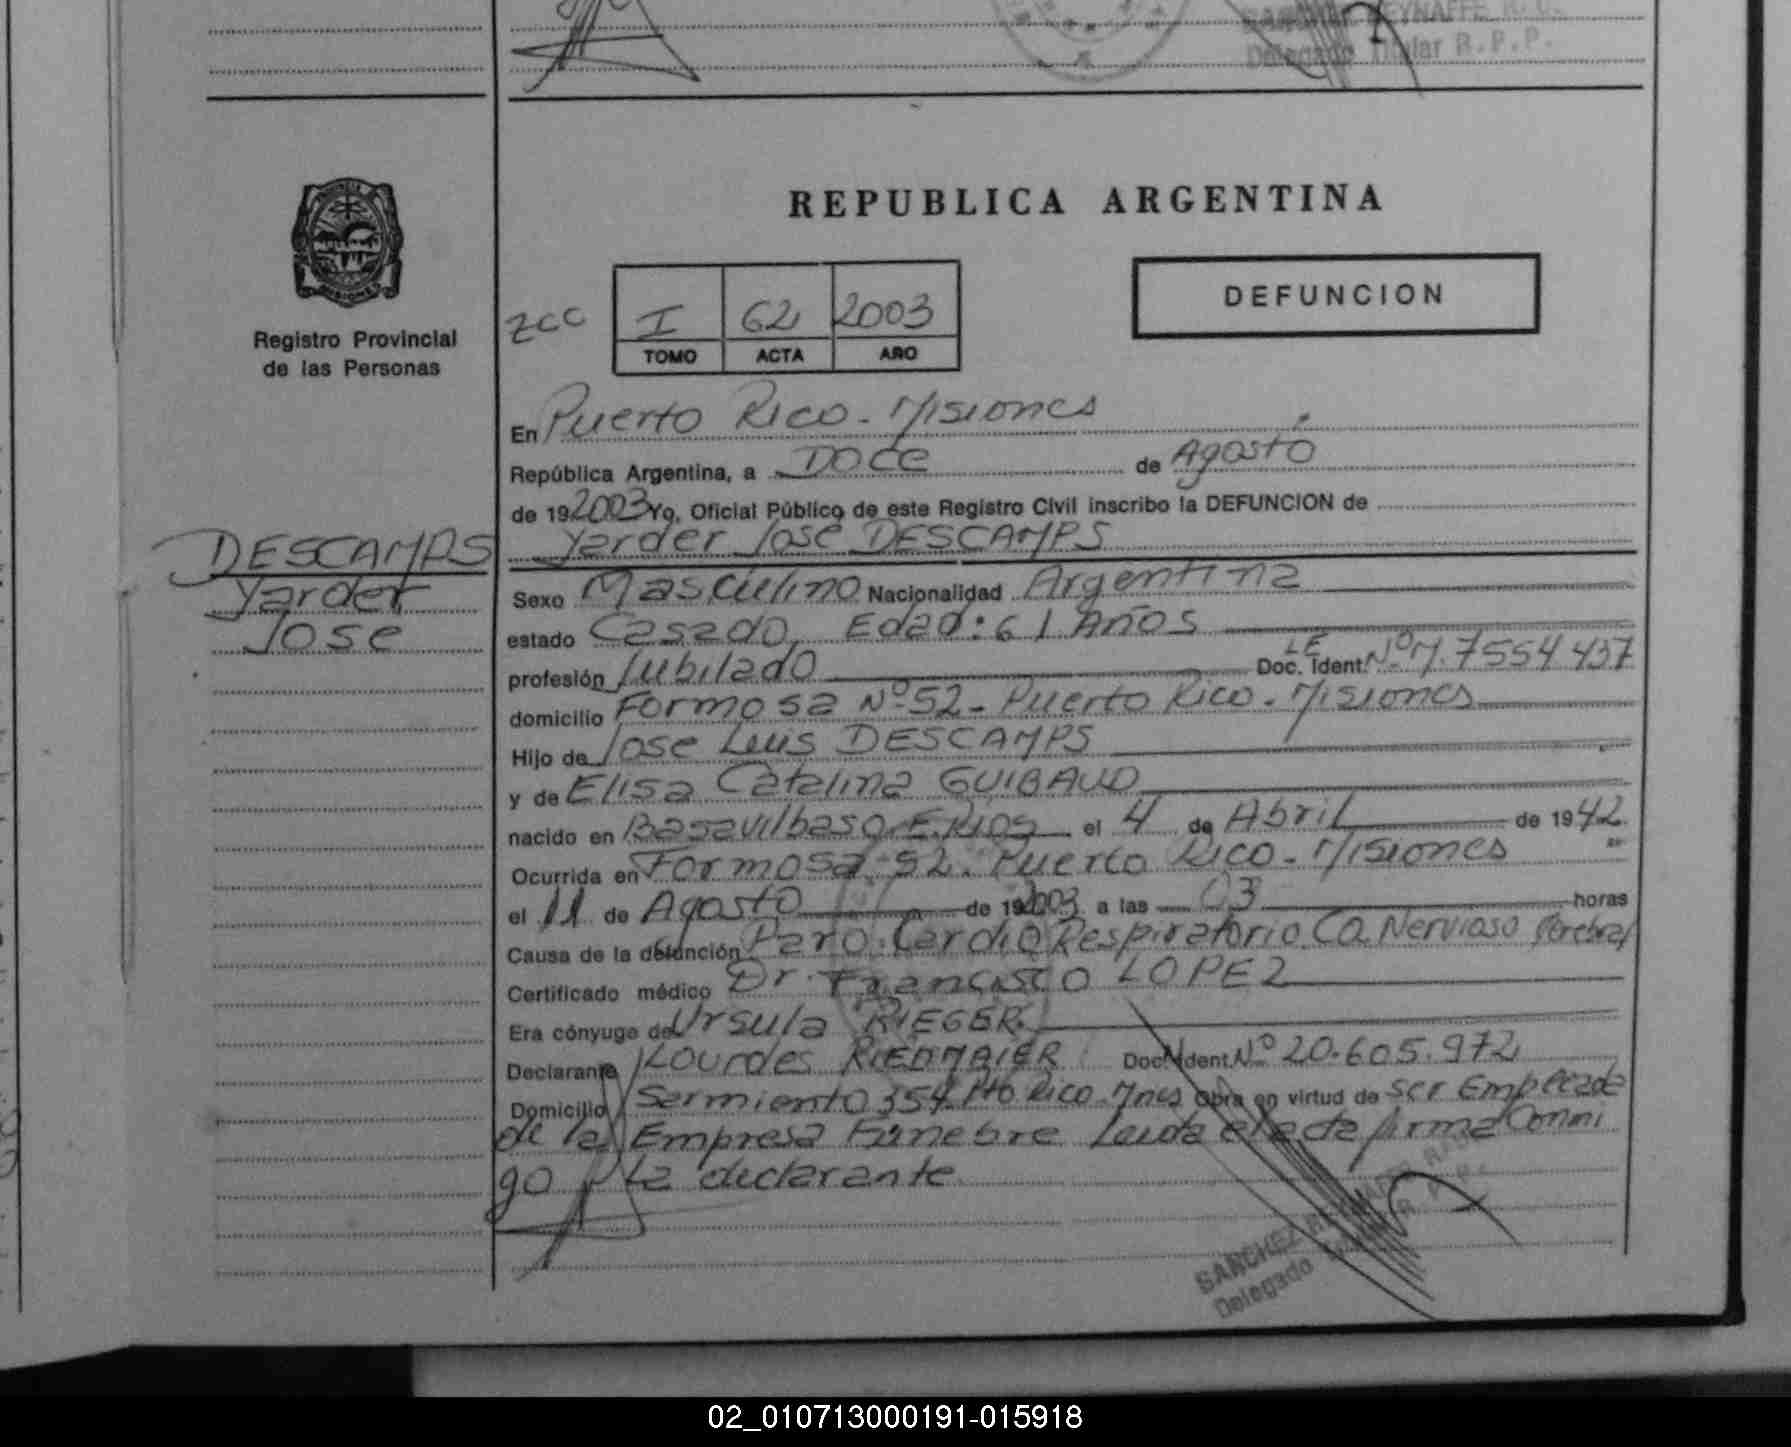 Delegado Titular R.P.P.
REPUBLICA ARGENTINA
MISIONES
Registro Provincial
de las Personas
DEFUNCION
I 62 2003
TOMO ACTA AÑO
En Puerto Rico - Misiones
República Argentina, a DOCE de Agosto
de 192003 Yo, Oficial Público de este Registro Civil inscribo la DEFUNCION de
Yarder Jose DESCAMPS
DESCAMPS
Yarder
Jose
Sexo Masculino Nacionalidad Argentina
estado Casado Edad: 61 Años
profesión Jubilado Doc. Ident. LE Nº M. 7554437
domicilio Formosa Nº 52 - Puerto Rico - Misiones
Hijo de Jose Luis DESCAMPS
y de Elisa Catalina GUIBAUD
nacido en Basavilbaso E. Rios el 4 de Abril de 1942
Ocurrida en Formosa 52. Puerto Rico - Misiones
el 11 de Agosto de 192003 a las 03 horas
Causa de la defunción Paro Cardio Respiratorio Ca. Nervioso Cerebral
Certificado médico Dr. Francisco LOPEZ
Era cónyuge de Ursula RIEGER
Declarante Lourdes RIEDMAIER Doc. Ident. Nº 20.605.972
Domicilio Sarmiento 354 Pto Rico - Mnes Obra en virtud de ser Empleada
de la Empresa Funebre Leida el acta firma Conmi
go La declarante
SANCHEZ
Delegado
02_010713000191-015918